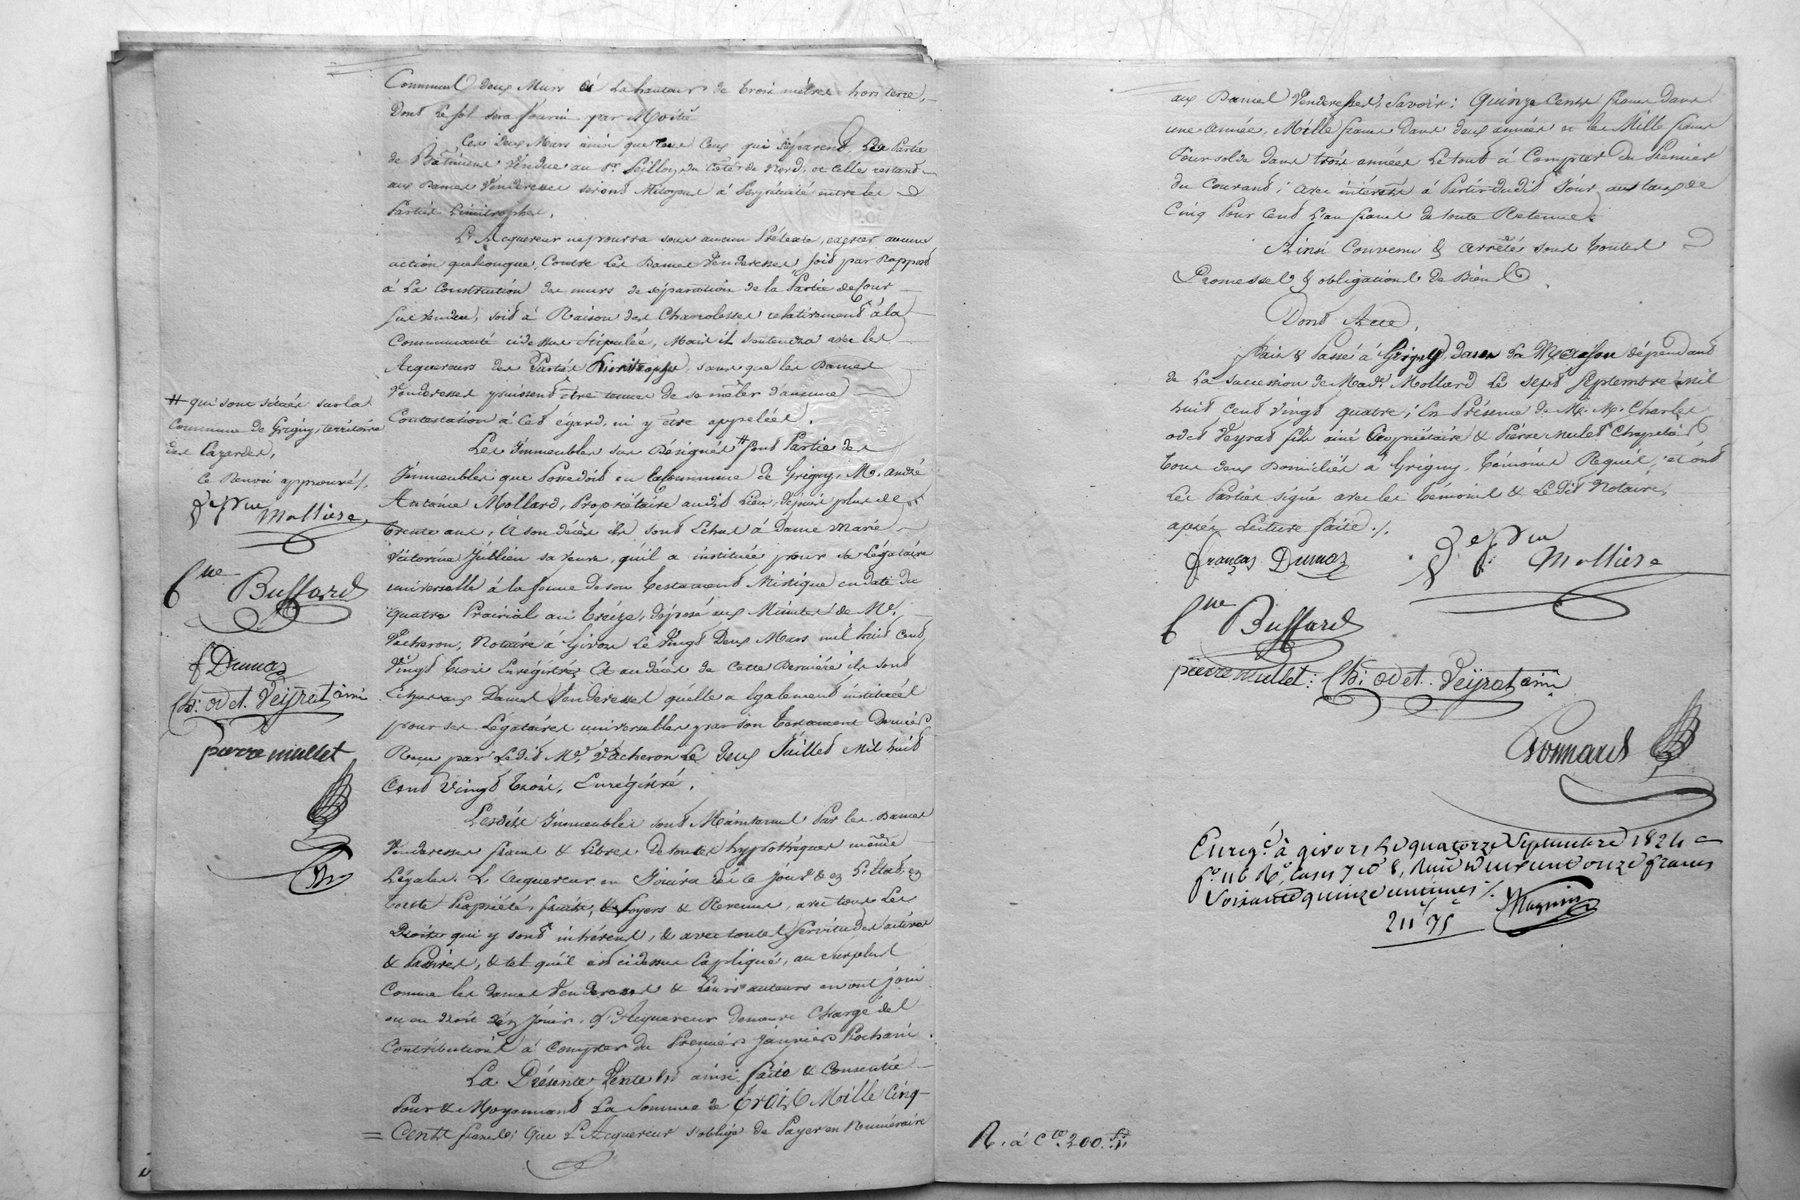 Commun deux Murs à la hauteur de trois mètres hors terre,
Dont le sol sera fourni par Moitié
Les deux Murs ainsi que ceux qui séparent la Partie
de Bâtiment Vendue au Sr du Côté de Nord, et celle restant
aux Dames Venderesses seront Mitoyens à Perpétuité entre les
Parties Limitrophes.
L'Acquereur ne pourra sous aucun Prétexte, exercer aucune
action quelconque, Contre les Dames Venderesses, soit par Rapport
à La Construction des murs de séparation de la Partie de Cour
sus vendue, soit à Raison des relativement à la
Communauté cidessus Stipulée, Mais il s'entendra avec les
Acquereurs des Parties Limitrophes, sans que les Dames
Venderesses puissent être tenues de se mêler d'aucune
Contestation à Cet égard, ni y être appelées.
Les Immeubles sus Désignés # font Partie des
Immeubles que Possédoit en la Commune de Grigny, Mr. André
Antoine Mollard, Propriétaire audit Lieu, depuis plus de
trente ans, à son décès ils sont Echus à Dame Marie
Victorine Jullien sa Veuve, qu'il a instituée pour sa Légataire
universelle à la forme de son testament Mistique en date du
quatre Prairial an treize, déposé aux Minutes de Me.
Vacheron, Notaire à Givors Le Vingt Deux Mars mil huit Cent
Vingt trois Enregistré, Et au décès de Cette Dernière ils sont
Echus aux Dames Venderesses qu'elle a Egalement instituées
pour ses Légataires universelles par son testament Dernier
Reçu par Ledit Me. Vacheron Le deux Juillet Mil huit
Cent Vingt trois, Enregistré.
Lesdits Immeubles sont Maintenus Par les Dames
Venderesses francs & Libres De toutes hypothèques même
Légales. L'Acquereur en Jouira dès ce jour & en
toute Propriété, fruits, Loyers & Revenus, avec tous les
Droits qui y sont inhérents, & avec toutes Servitudes actives
& Passives, & tel qu'il est cidessus Expliqué, au surplus
Comme les dames Venderesses & Leurs auteurs en ont joui
ou eu droit d'en Jouir. L'Acquereur demeure Chargé des
Contributions à Compter du Premier Janvier Prochain.
La Présente Vente Est ainsi faite & Consentie
Pour & Moyennant La Somme de trois Mille Cinq
Cents francs; Que L'Acquereur s'oblige de Payer en Numéraire
# qui sont situés sur la
Commune de Grigny, territoire
des
Ce Renvoi approuvé /.
Molliere
Buffard
f Dumas
Ch: odet Veyrat ainé
pierre mullet
aux Dames Venderesses, Savoir: Quinze Cents francs Dans
une année, Mille francs dans deux années et les Mille francs
Pour solde dans trois années Le tout à Compter du Premier
du Courant; avec intérêts à Partir dudit Jour, au taux de
Cinq Pour Cent L'an francs de toute Retenue.
Ainsi Convenu & arrêté sous toutes
Promesses & obligations de Biens.
Dont Acte,
fait & Passé à Grigny, dans La Maison dépendant
de La succession de Made. Mollard Le sept Septembre Mil
huit Cent Vingt quatre; En Présence de Mr. Mr. Charles
odet Veyrat fils ainé Propriétaire & Pierre Mulet
tous deux Domiciliés à Grigny, témoins Requis, et ont
Les Parties Signé avec les témoins & Ledit Notaire,
après Lecture faite ./.
françois Dumas
Molliere
Buffard
pierre mullet: Ch: odet. Veyrat ainé
Bonnard
Enregé. à givors Le quatorze Septembre 1824
fo. 116 Ro. Cases 7 et 8, Reçu deux cent onze francs
Soixante quinze centimes /.
211f 75c
Magnin
R. à Cte. 200 f